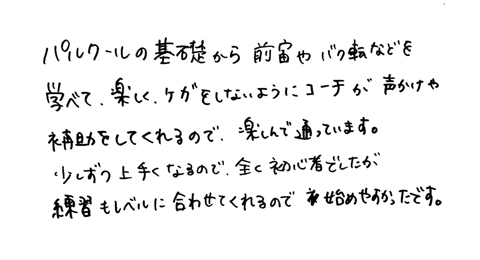 パルクールの基礎から前宙やバク転などを
学べて、楽しく、ケガをしないようにコーチが声かけや
補助をしてくれるので、楽しんで通っています。
少しずつ上手くなるので、全く初心者でしたが
練習もレベルに合わせてくれるので始めやすかったです。